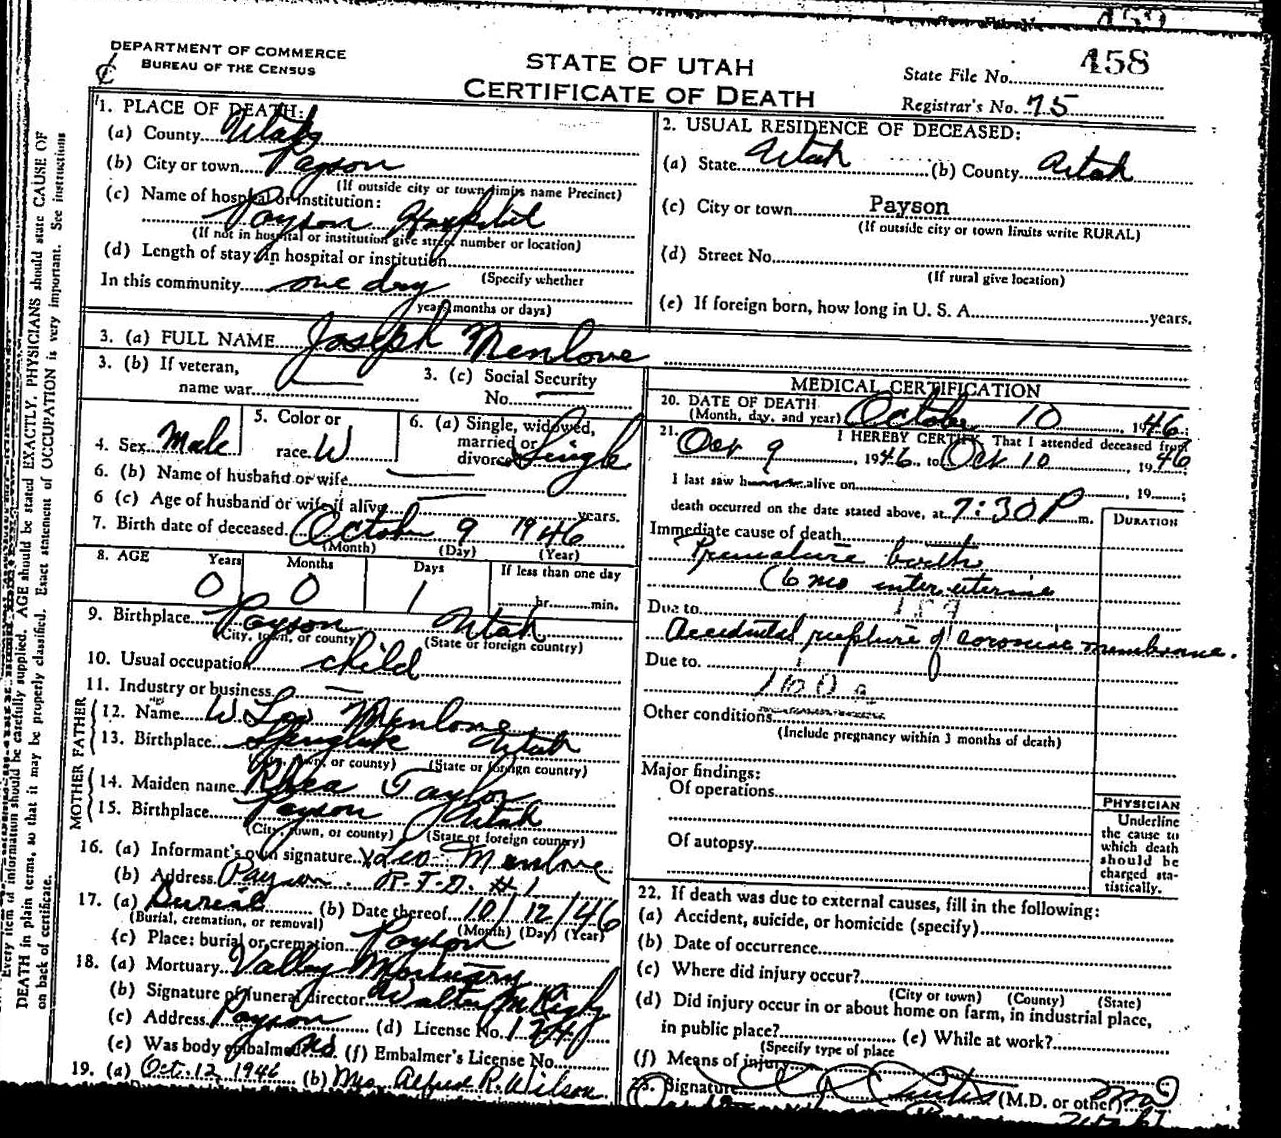 458
DEPARTMENT OF COMMERCE
BUREAU OF THE CENSUS
STATE OF UTAH
CERTIFICATE OF DEATH
State File No.
Registrar's No. 75
1. PLACE OF DEATH:
(a) County Utah
(b) City or town Payson
(If outside city or town limits name Precinct)
(c) Name of hospital or institution:
Payson Hospital
(If not in hospital or institution give street number or location)
(d) Length of stay: In hospital or institution
(Specify whether
In this community one day
years, months or days)
2. USUAL RESIDENCE OF DECEASED:
(a) State Utah (b) County Utah
(c) City or town Payson
(If outside city or town limits write RURAL)
(d) Street No.
(If rural give location)
(e) If foreign born, how long in U. S. A. years.
3. (a) FULL NAME Joseph Menlove
3. (b) If veteran,
name war
3. (c) Social Security
No.
4. Sex Male
5. Color or
race W
6. (a) Single, widowed,
married or
divorced Single
6. (b) Name of husband or wife
6 (c) Age of husband or wife if alive years.
7. Birth date of deceased October 9 1946
(Month) (Day) (Year)
8. AGE Years Months Days If less than one day
0 0 1 hr. min.
9. Birthplace Payson Utah
(City, town, or county) (State or foreign country)
10. Usual occupation child
11. Industry or business
FATHER
12. Name W. Leo Menlove
13. Birthplace Utah
(City, town, or county) (State or foreign country)
MOTHER
14. Maiden name Rhea Taylor
15. Birthplace Payson Utah
(City, town, or county) (State or foreign country)
16. (a) Informant's own signature X Leo Menlove
(b) Address Payson. R.F.D. #1
17. (a) Burial (b) Date thereof 10/12/46
(Burial, cremation, or removal) (Month) (Day) (Year)
(c) Place: burial or cremation Payson
18. (a) Mortuary Valley Mortuary
(b) Signature of funeral director Walter M Rigby
(c) Address Payson (d) License No. 1244
(e) Was body embalmed? no (f) Embalmer's License No.
19. (a) Oct. 12, 1946 (b) Mrs. Alfred R. Wilson
MEDICAL CERTIFICATION
20. DATE OF DEATH
(Month, day, and year) October 10, 1946;
21. I HEREBY CERTIFY, That I attended deceased from
Oct 9, 1946, to Oct 10, 1946
I last saw h alive on, 19;
death occurred on the date stated above, at 7:30 P m.
DURATION
Immediate cause of death
Premature birth
(6 mo inter uterine
Due to 159
Accidental rupture of membrane.
Due to
160a
Other conditions
(Include pregnancy within 3 months of death)
Major findings:
Of operations
Of autopsy
PHYSICIAN
Underline
the cause to
which death
should be
charged sta-
tistically.
22. If death was due to external causes, fill in the following:
(a) Accident, suicide, or homicide (specify)
(b) Date of occurrence
(c) Where did injury occur?
(City or town) (County) (State)
(d) Did injury occur in or about home on farm, in industrial place,
in public place? (e) While at work?
(Specify type of place
(f) Means of injury
23. Signature (M.D. or other) MD
Every item of information should be carefully supplied. AGE should be stated EXACTLY. PHYSICIANS should state CAUSE OF
DEATH in plain terms, so that it may be properly classified. Exact statement of OCCUPATION is very important. See instructions
on back of certificate.